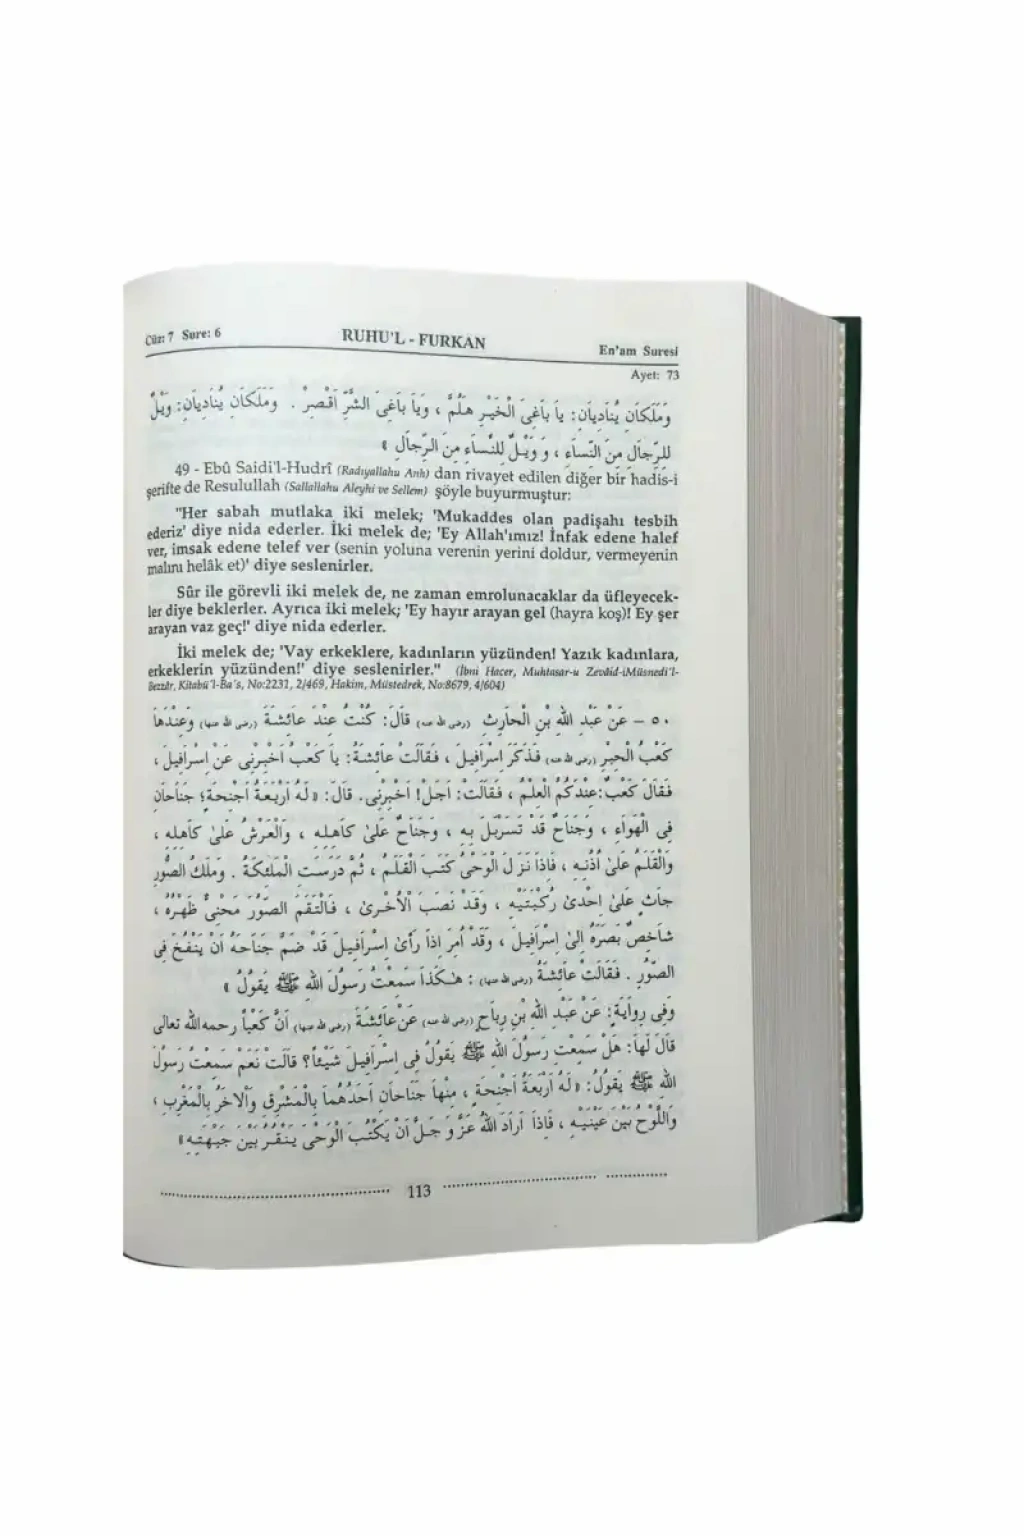 Cüz: 7 Sure: 6
RUHU'L - FURKAN
En'am Suresi
Ayet: 73
وَمَلَكَانِ يُنَادِيَانِ: يَا بَاغِىَ الْخَيْرِ هَلُمَّ ، وَيَا بَاغِىَ الشَّرِّ اَقْصِرْ . وَمَلَكَانِ يُنَادِيَانِ: وَيْلٌ
لِلرِّجَالِ مِنَ النِّسَاءِ ، وَ وَيْلٌ لِلنِّسَاءِ مِنَ الرِّجَالِ »
49 - Ebû Saidi'l-Hudrî (Radıyallahu Anh) dan rivayet edilen diğer bir hadis-i
şerifte de Resulullah (Sallallahu Aleyhi ve Sellem) şöyle buyurmuştur:
"Her sabah mutlaka iki melek; 'Mukaddes olan padişahı tesbih
ederiz' diye nida ederler. İki melek de; 'Ey Allah'ımız! İnfak edene halef
ver, imsak edene telef ver (senin yoluna verenin yerini doldur, vermeyenin
malını helâk et)' diye seslenirler.
Sûr ile görevli iki melek de, ne zaman emrolunacaklar da üfleyecek-
ler diye beklerler. Ayrıca iki melek; 'Ey hayır arayan gel (hayra koş)! Ey şer
arayan vaz geç!' diye nida ederler.
İki melek de; 'Vay erkeklere, kadınların yüzünden! Yazık kadınlara,
erkeklerin yüzünden!' diye seslenirler." (İbni Hacer, Muhtasar-u Zevâid-iMüsnedi'l-
Bezzâr, Kitabü'l-Ba's, No:2231, 2/469, Hakim, Müstedrek, No:8679, 4/604)
٥٠ – عَنْ عَبْدِ اللهِ بْنِ الْحَارِثِ (رضى الله عنه) قَالَ: كُنْتُ عِنْدَ عَائِشَةَ (رضى الله عنها) وَعِنْدَهَا
كَعْبُ الْحِبْرِ (رضى الله عنه) فَذَكَرَ اِسْرَافِيلَ ، فَقَالَتْ عَائِشَةُ: يَا كَعْبُ اَخْبِرْنِى عَنْ اِسْرَافِيلَ ،
فَقَالَ كَعْبٌ: عِنْدَكُمُ الْعِلْمُ ، فَقَالَتْ: اَجَلْ! اَخْبِرْنِى. قَالَ: « لَهُ اَرْبَعَةُ اَجْنِحَةٍ؛ جَنَاحَانِ
فِى الْهَوَاءِ ، وَجَنَاحٌ قَدْ تَسَرْبَلَ بِهِ ، وَجَنَاحٌ عَلَىٰ كَاهِلِهِ ، وَالْعَرْشُ عَلَىٰ كَاهِلِهِ ،
وَالْقَلَمُ عَلَىٰ اُذُنِهِ ، فَاِذَا نَزَلَ الْوَحْىُ كَتَبَ الْقَلَمُ ، ثُمَّ دَرَسَتِ الْمَلٰئِكَةُ . وَمَلَكُ الصُّورِ
جَاثٍ عَلَىٰ اِحْدَىٰ رُكْبَتَيْهِ ، وَقَدْ نَصَبَ الْاُخْرَىٰ ، فَالْتَقَمَ الصُّورَ مَحْنِىٌّ ظَهْرُهُ ،
شَاخِصٌ بَصَرُهُ اِلَىٰ اِسْرَافِيلَ ، وَقَدْ اُمِرَ اِذَا رَأَىٰ اِسْرَافِيلَ قَدْ ضَمَّ جَنَاحَهُ اَنْ يَنْفُخَ فِى
الصُّورِ . فَقَالَتْ عَائِشَةُ (رضى الله عنها) : هٰكَذَا سَمِعْتُ رَسُولَ اللهِ ﷺ يَقُولُ »
وَفِى رِوَايَةٍ: عَنْ عَبْدِ اللهِ بْنِ رِبَاحٍ (رضى الله عنه) عَنْ عَائِشَةَ (رضى الله عنها) اَنَّ كَعْبًا رحمه الله تعالى
قَالَ لَهَا: هَلْ سَمِعْتِ رَسُولَ اللهِ ﷺ يَقُولُ فِى اِسْرَافِيلَ شَيْئًا؟ قَالَتْ نَعَمْ سَمِعْتُ رَسُولَ
اللهِ ﷺ يَقُولُ: « لَهُ اَرْبَعَةُ اَجْنِحَةٍ ، مِنْهَا جَنَاحَانِ اَحَدُهُمَا بِالْمَشْرِقِ وَالْاٰخَرُ بِالْمَغْرِبِ ،
وَاللَّوْحُ بَيْنَ عَيْنَيْهِ ، فَاِذَا اَرَادَ اللهُ عَزَّ وَجَلَّ اَنْ يَكْتُبَ الْوَحْىَ يَنْقُرُ بَيْنَ جَبْهَتِهِ »
113